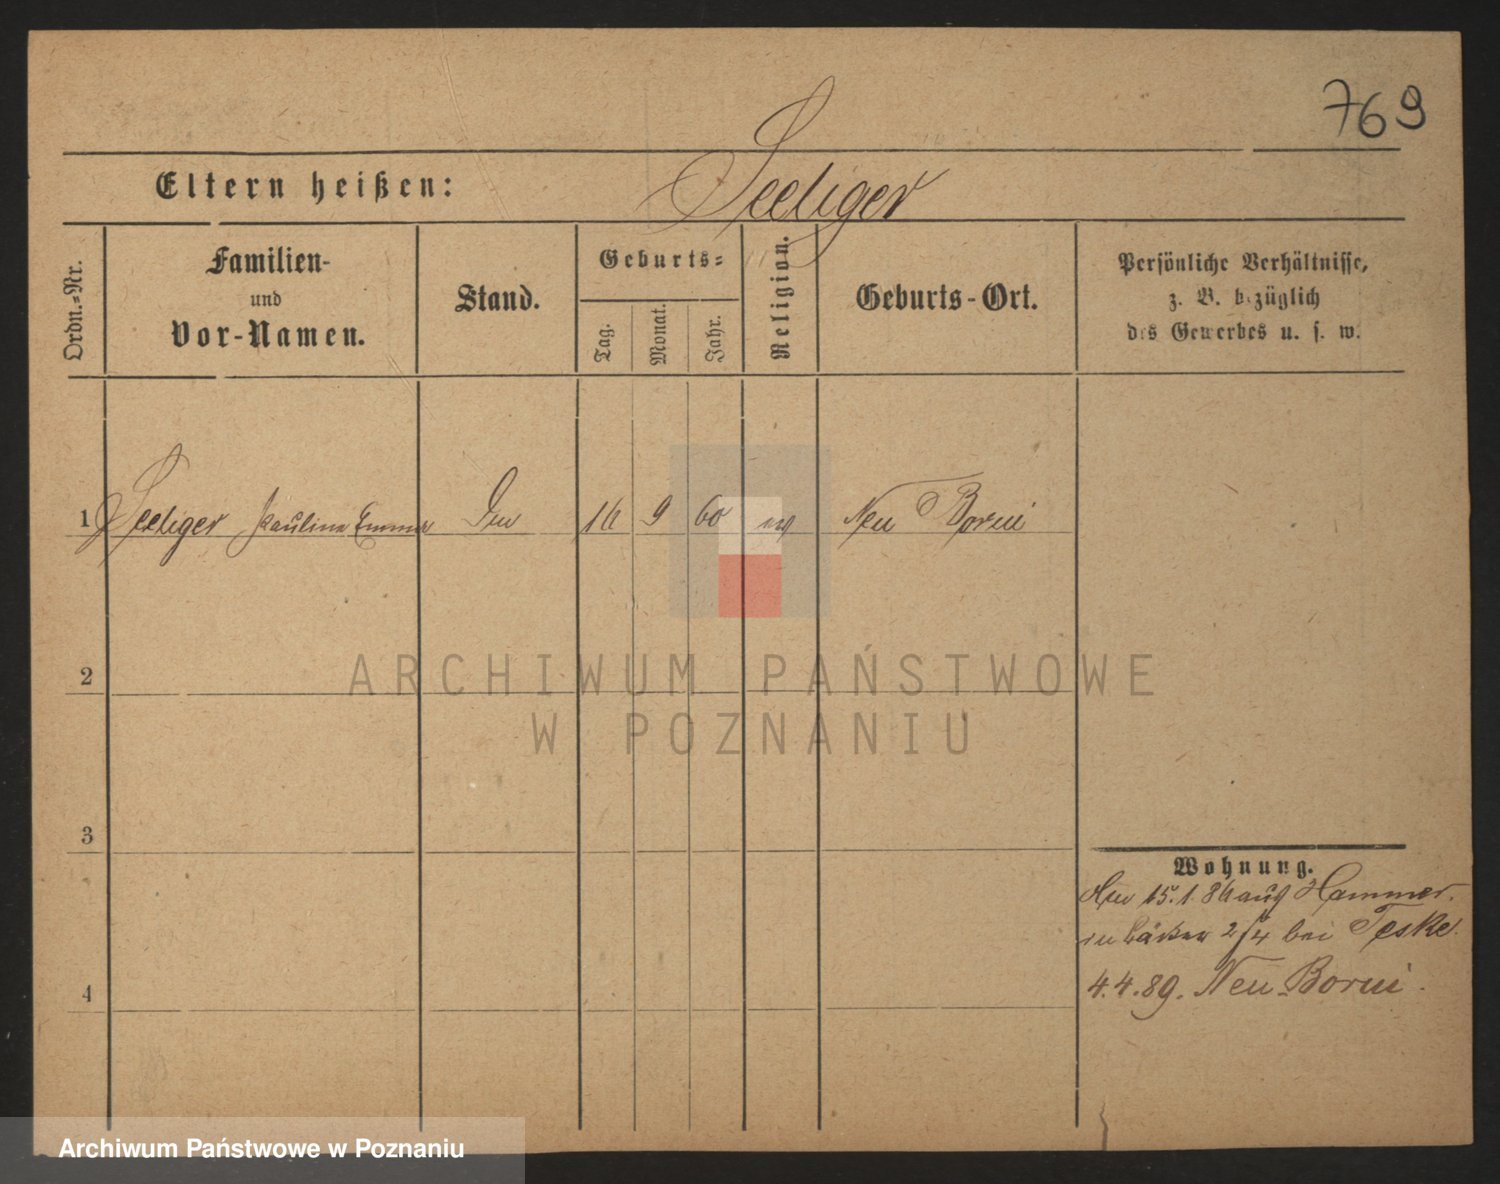 769
Eltern heißen: Seeliger
Ordn.=Nr.
Familien-
und
Vor-Namen.
Stand.
Geburts=
Tag.
Monat.
Jahr.
Religion.
Geburts-Ort.
Persönliche Verhältnisse,
z. B. bezüglich
des Gewerbes u. s. w.
1 Seeliger Pauline Emma 16 9 60 ev Neu Borui
2
3
4
Wohnung.
15.1.86 aus Hammer.
2/4 bei Teske.
4.4.89. Neu-Borui.
ARCHIWUM PAŃSTWOWE
W POZNANIU
Archiwum Państwowe w Poznaniu